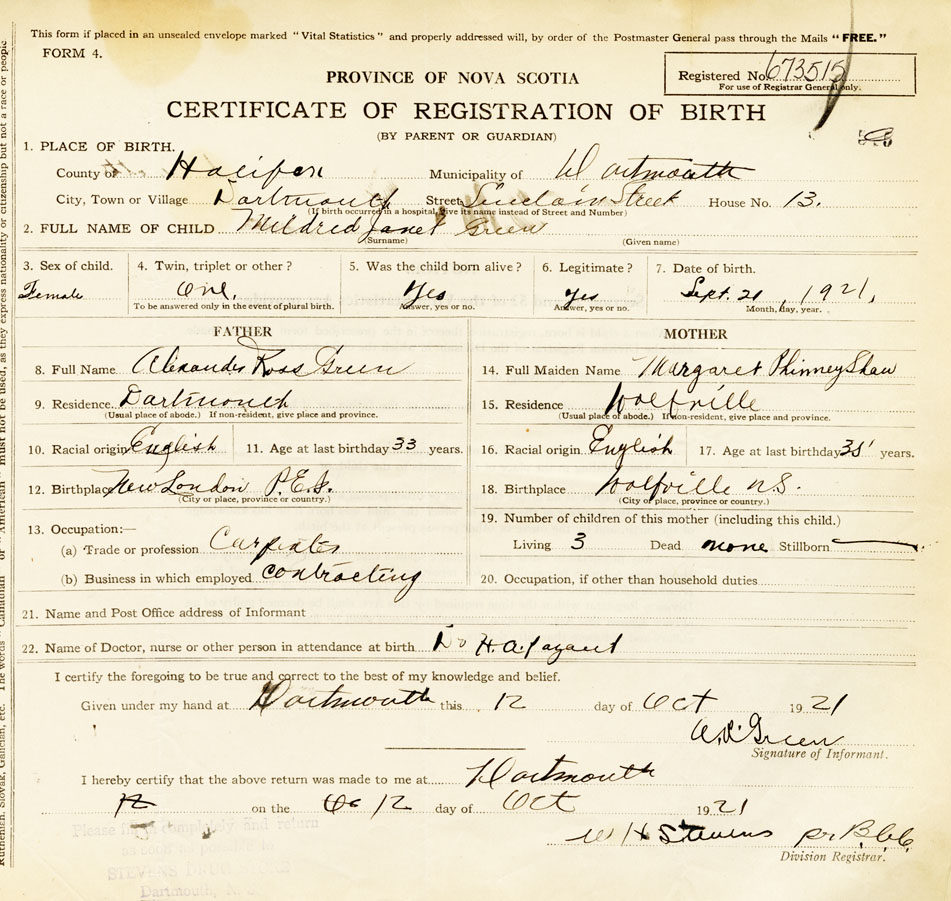 This form if placed in an unsealed envelope marked "Vital Statistics" and properly addressed will, by order of the Postmaster General pass through the Mails "FREE."
FORM 4.
Registered No. 673515
For use of Registrar General only.
PROVINCE OF NOVA SCOTIA
CERTIFICATE OF REGISTRATION OF BIRTH
(BY PARENT OR GUARDIAN)
1. PLACE OF BIRTH.
County of Halifax Municipality of Dartmouth
City, Town or Village Dartmouth Street Sinclair Street House No. 13.
(If birth occurred in a hospital, give its name instead of Street and Number)
2. FULL NAME OF CHILD Mildred Janet Green
(Surname) (Given name)
3. Sex of child. 4. Twin, triplet or other? 5. Was the child born alive? 6. Legitimate? 7. Date of birth.
Female One. Yes Yes Sept. 21, 1921,
To be answered only in the event of plural birth. Answer, yes or no. Answer, yes or no. Month, day, year.
FATHER
8. Full Name Alexander Ross Green
9. Residence Dartmouth
(Usual place of abode.) If non-resident, give place and province.
10. Racial origin English 11. Age at last birthday 33 years.
12. Birthplace New London P.E.I.
(City or place, province or country.)
13. Occupation:—
(a) Trade or profession Carpenter
(b) Business in which employed contracting
MOTHER
14. Full Maiden Name Margaret Phinney Shaw
15. Residence Wolfville
(Usual place of abode.) If non-resident, give place and province.
16. Racial origin English 17. Age at last birthday 35 years.
18. Birthplace Wolfville N.S.
(City or place, province or country.)
19. Number of children of this mother (including this child.)
Living 3 Dead none Stillborn
20. Occupation, if other than household duties
21. Name and Post Office address of Informant
22. Name of Doctor, nurse or other person in attendance at birth Dr H.A. Payzant
I certify the foregoing to be true and correct to the best of my knowledge and belief.
Given under my hand at Dartmouth this 12 day of Oct 1921
A.R. Green
Signature of Informant.
I hereby certify that the above return was made to me at Dartmouth
on the 12 day of Oct 1921
W H Stevens pr
Division Registrar.
Please fill in completely and return
as soon as possible to
STEVENS DRUG STORE
Dartmouth, N. S.